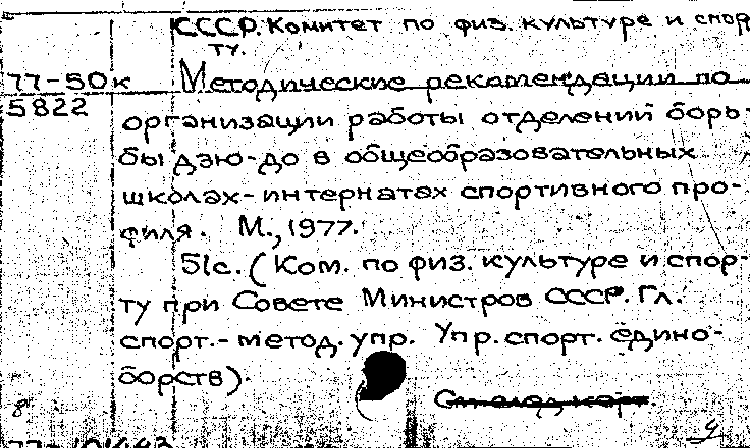 СССР. Комитет по физ. культуре и спор
ту.
77-50к Методические рекомендации по
5822
организации работы отделений борь-
бы дзю-до в общеобразовательных
школах-интернатах спортивного про-
филя. М., 1977.
51с. (Ком. по физ. культуре и спор-
ту при Совете Министров СССР. Гл.
спорт.-метод. упр. Упр. спорт. едино-
борств).